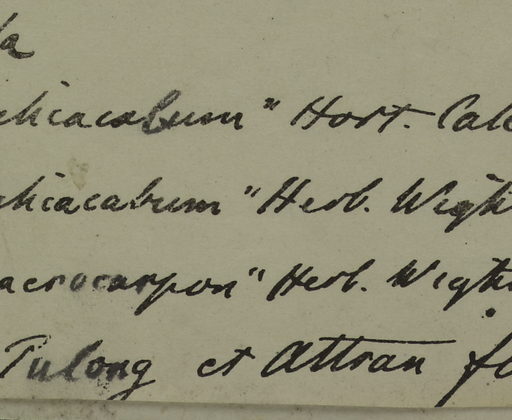 la
chiacabum" Hort. Calc
chiacabum" Herb. Wight
acrocarpon" Herb. Wight
Pulong et Attran fl